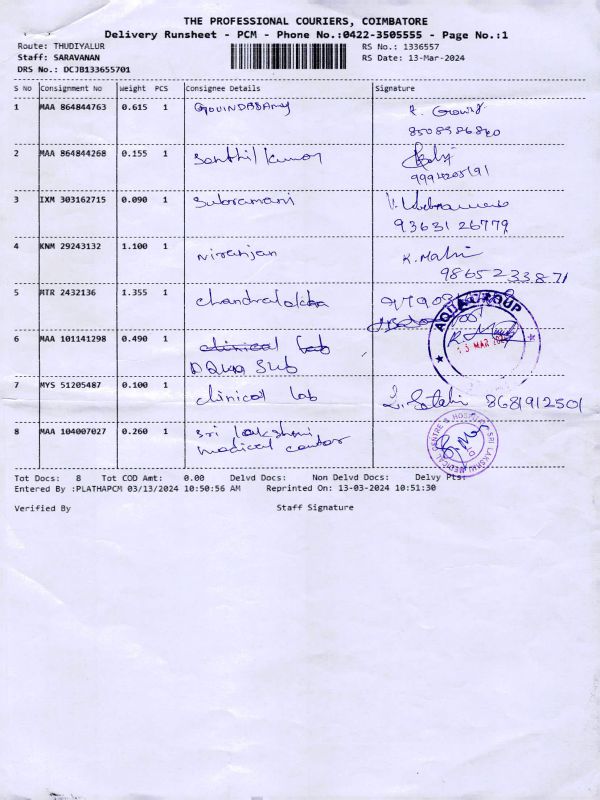 THE PROFESSIONAL COURIERS, COIMBATORE
Delivery Runsheet - PCM - Phone No.:0422-3505555 - Page No.:1
Route: THUDIYALUR
RS No.: 1336557
Staff: SARAVANAN
RS Date: 13-Mar-2024
DRS No.: DCJB133655701
S No Consignment No Weight PCS Consignee Details Signature
1 MAA 864844763 0.615 1 GOVINDASAMY
2 MAA 864844268 0.155 1 Senthil kumar
3 IXM 303162715 0.090 1 Subramani
93631 26779
4 KNM 29243132 1.100 1 Niranjan K. Mahi
98652 33871
5 MTR 2432136 1.355 1
AQUA GROUP
6 MAA 101141298 0.490 1 clinical lab
13 MAR
Sub
7 MYS 51205487 0.100 1 clinical lab 8681912501
8 MAA 104007027 0.260 1 Sri lakshmi
medical center
SRI LAKSHMI MEDICAL CENTRE & HOSPITAL
Tot Docs: 8 Tot COD Amt: 0.00 Delvd Docs: Non Delvd Docs: Delvy Pts:
Entered By :PLATHAPCM 03/13/2024 10:50:56 AM Reprinted On: 13-03-2024 10:51:30
Verified By Staff Signature